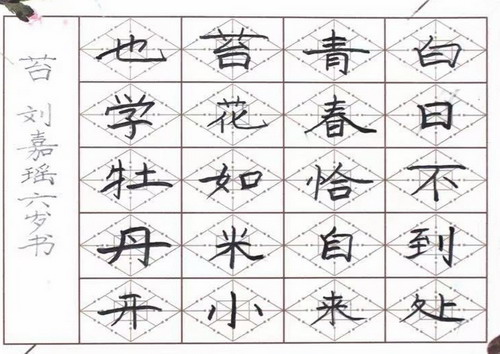 白日不到处
青春恰自来
苔花如米小
也学牡丹开
苔 刘嘉瑶六岁书